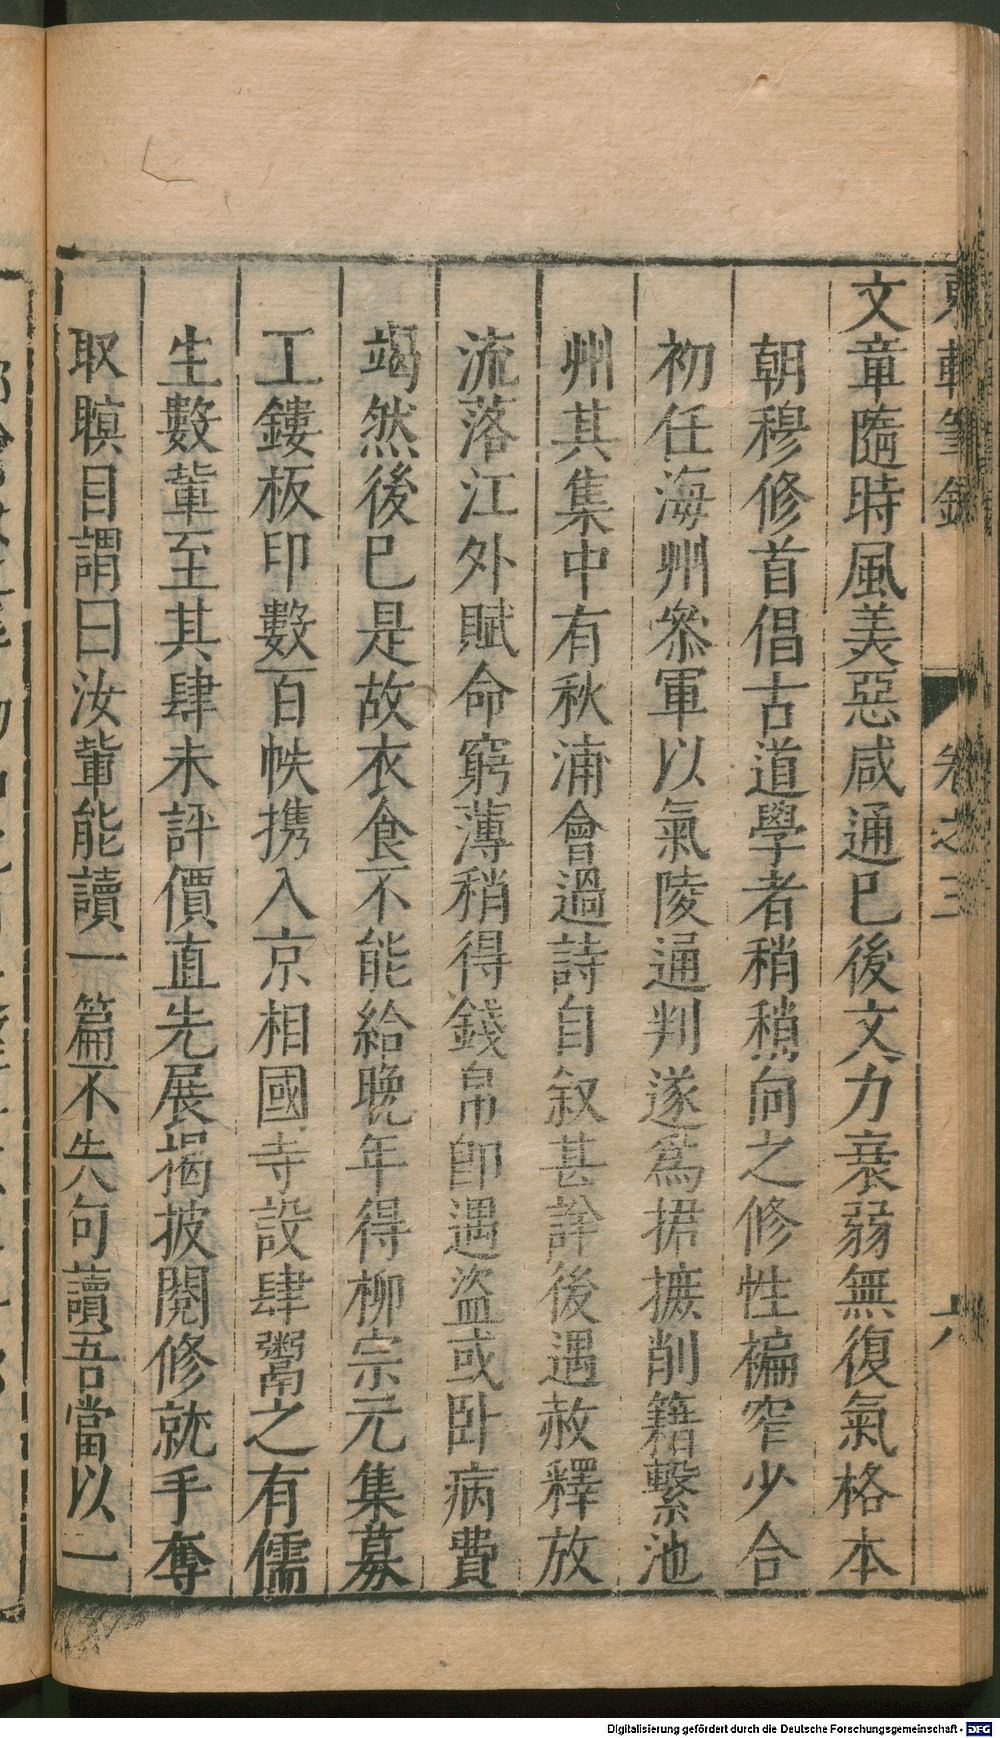 東軒筆錄
卷之三
六
文章隨時風美惡咸通已後文力衰弱無復氣格本
朝穆修首倡古道學者稍稍向之修性褊窄少合
初任海州叅軍以氣陵通判遂爲捃摭削籍繫池
州其集中有秋浦會過詩自叙甚詳後遇赦釋放
流落江外賦命窮薄稍得錢帛卽遇盜或卧病費
竭然後已是故衣食不能給晚年得柳宗元集募
工鏤板印數百帙携入京相國寺設肆鬻之有儒
生數輩至其肆未評價直先展揭披閱修就手奪
取瞋目謂曰汝輩能讀一篇不失句讀吾當以一
Digitalisierung gefördert durch die Deutsche Forschungsgemeinschaft - DFG